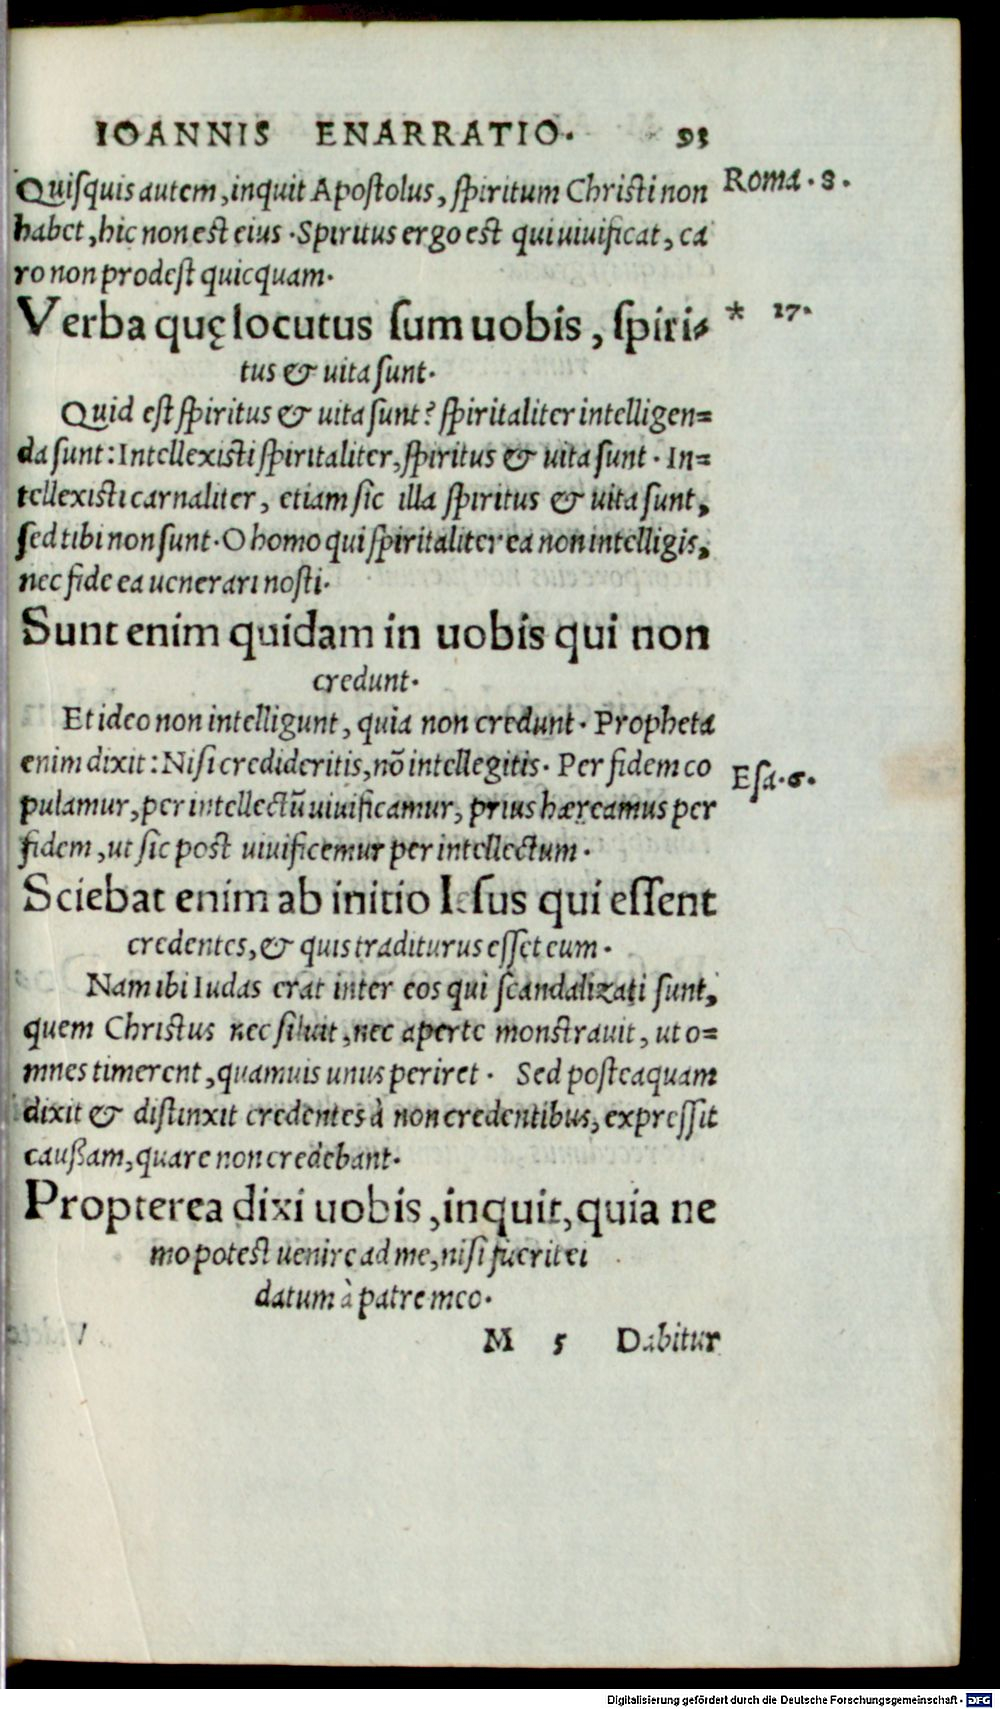 IOANNIS ENARRATIO. 93
Quisquis autem, inquit Apostolus, spiritum Christi non Roma. 8.
habet, hic non est eius. Spiritus ergo est qui uiuificat, ca
ro non prodest quicquam.
Verba quę locutus sum uobis, spiri- * 17.
tus & uita sunt.
Quid est spiritus & uita sunt? spiritaliter intelligen=
da sunt: Intellexisti spiritaliter, spiritus & uita sunt. In=
tellexisti carnaliter, etiam sic illa spiritus & uita sunt,
sed tibi non sunt. O homo qui spiritaliter ea non intelligis,
nec fide ea uenerari nosti.
Sunt enim quidam in uobis qui non
credunt.
Et ideo non intelligunt, quia non credunt. Propheta
enim dixit: Nisi credideritis, nō intellegitis. Per fidem co Esa. 6.
pulamur, per intellectū uiuificamur, prius hæreamus per
fidem, ut sic post uiuificemur per intellectum.
Sciebat enim ab initio Iesus qui essent
credentes, & quis traditurus esset eum.
Nam ibi Iudas erat inter eos qui scandalizati sunt,
quem Christus nec siluit, nec aperte monstrauit, ut o=
mnes timerent, quamuis unus periret. Sed posteaquam
dixit & distinxit credentes à non credentibus, expressit
caußam, quare non credebant.
Propterea dixi uobis, inquit, quia ne
mo potest uenire ad me, nisi fuerit ei
datum à patre meo.
M 5 Dabitur
Digitalisierung gefördert durch die Deutsche Forschungsgemeinschaft - DFG